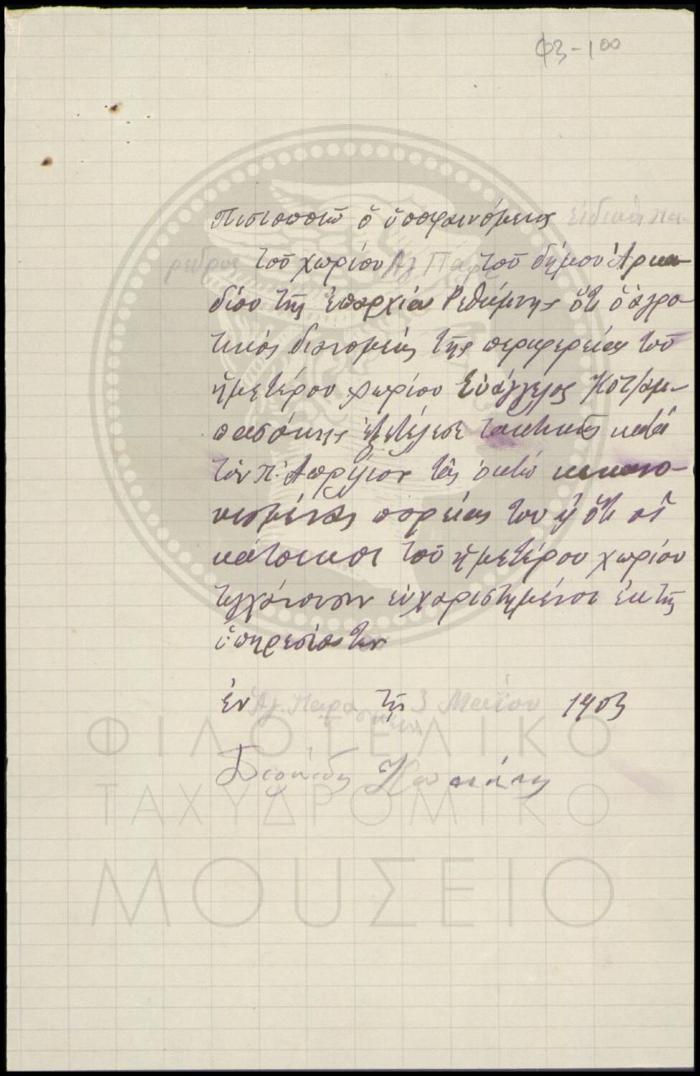 Φ3-100
Πιστοποιῶ ὁ ὑποφαινόμενος Εἰδικὸς Πά-
ρεδρος τοῦ χωρίου Ἁγ. Παρ. τοῦ δήμου Ἀρκα-
δίου τῆς ἐπαρχίας Ρεθύμνης ὅτι ὁ ἀγρο-
τικὸς διανομεὺς τῆς περιφερείας τοῦ
ἡμετέρου χωρίου Εὐάγγελος Κοτζαμ-
πασάκης ἐξετέλεσε τακτικῶς κατὰ
τὸν π. Ἀπρίλιον τὰς ὀκτὼ κεκανο-
νισμένας πορείας του ἢ ὅτι οἱ
κάτοικοι τοῦ ἡμετέρου χωρίου
τυγχάνουσιν εὐχαριστημένοι ἐκ τῆς
ὑπηρεσίας του
ἐν Ἁγ. Παρασκευῇ τῇ 3 Μαΐου 1903
ΦΙΛΟΤΕΛΙΚΟ
ΤΑΧΥΔΡΟΜΙΚΟ
ΜΟΥΣΕΙΟ